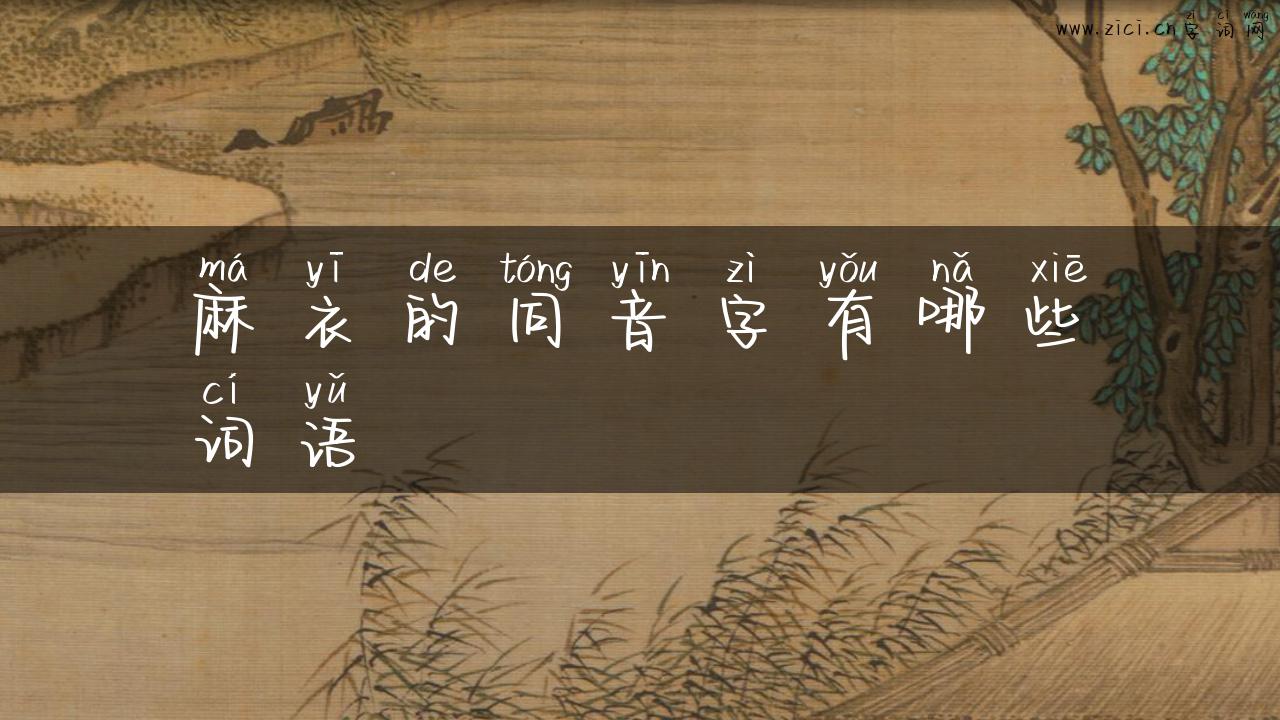 zì cí wǎng
www.zici.cn字词网
má yī de tóng yīn zì yǒu nǎ xiē
麻衣的同音字有哪些
cí yǔ
词语